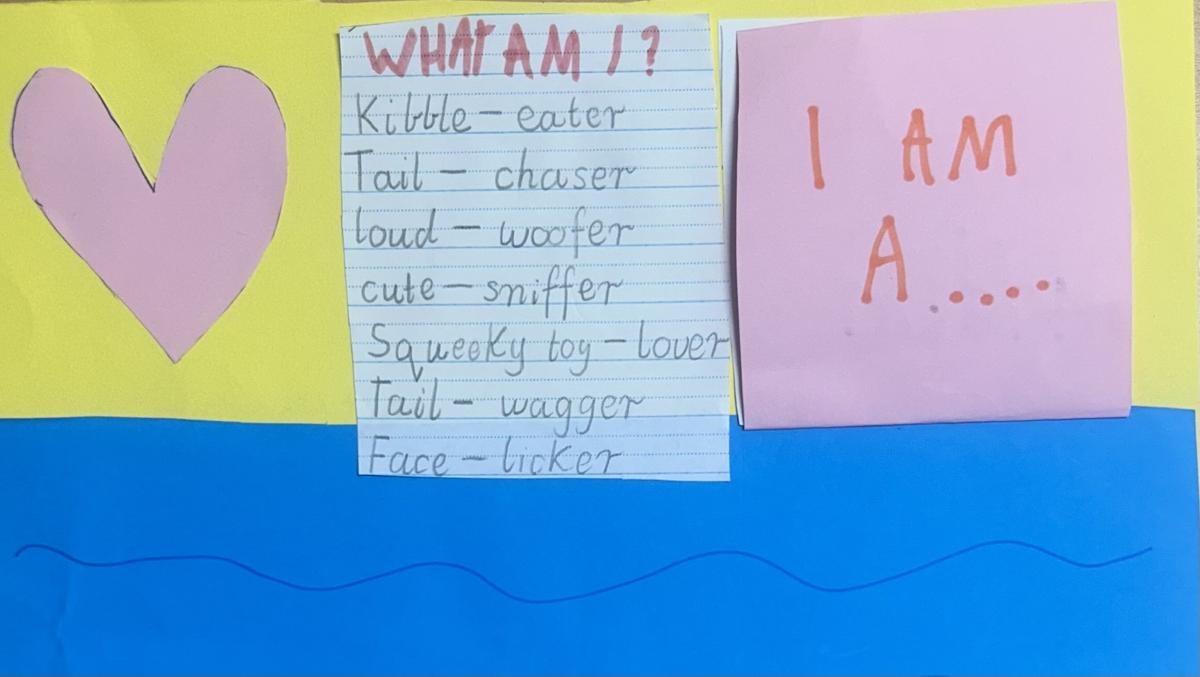 WHAT AM I?
Kibble - eater
Tail - chaser
loud - woofer
cute - sniffer
Squeeky toy - lover
Tail - wagger
Face - licker
I AM
A ....